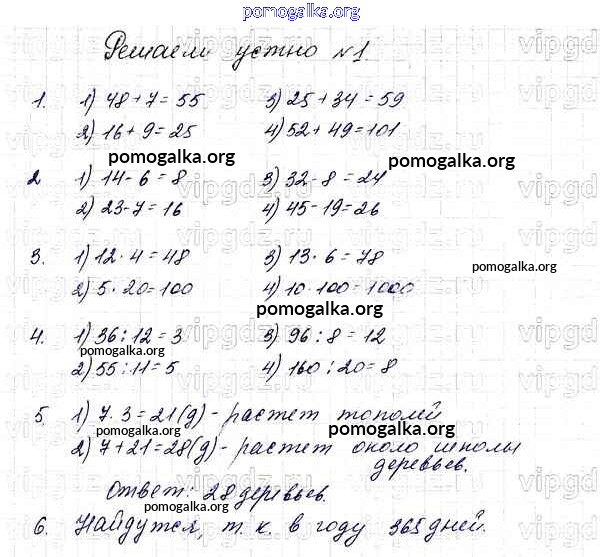 pomogalka.org
Решаем устно №1
1. 1) 48+7=55 3) 25+34=59
2) 16+9=25 4) 52+49=101
pomogalka.org pomogalka.org
2 1) 14-6=8 3) 32-8=24
2) 23-7=16 4) 45-19=26
3. 1) 12·4=48 3) 13·6=78
pomogalka.org
2) 5·20=100 4) 10·100=1000
pomogalka.org
4. 1) 36:12=3 3) 96:8=12
pomogalka.org
2) 55:11=5 4) 160:20=8
5. 1) 7·3=21(д)-растет тополей
pomogalka.org
2) 7+21=28(д)-растет около школы
деревьев.
Ответ: 28 деревьев.
pomogalka.org
6. Найдутся, т.к. в году 365 дней.